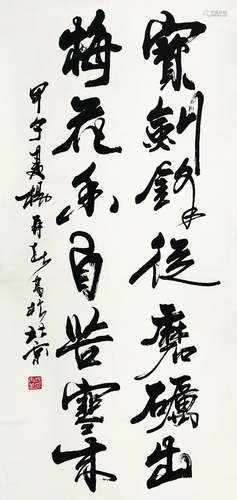 寳劍鋒從磨礪出
梅花香自苦寒来
甲午夏楊再春書於北京